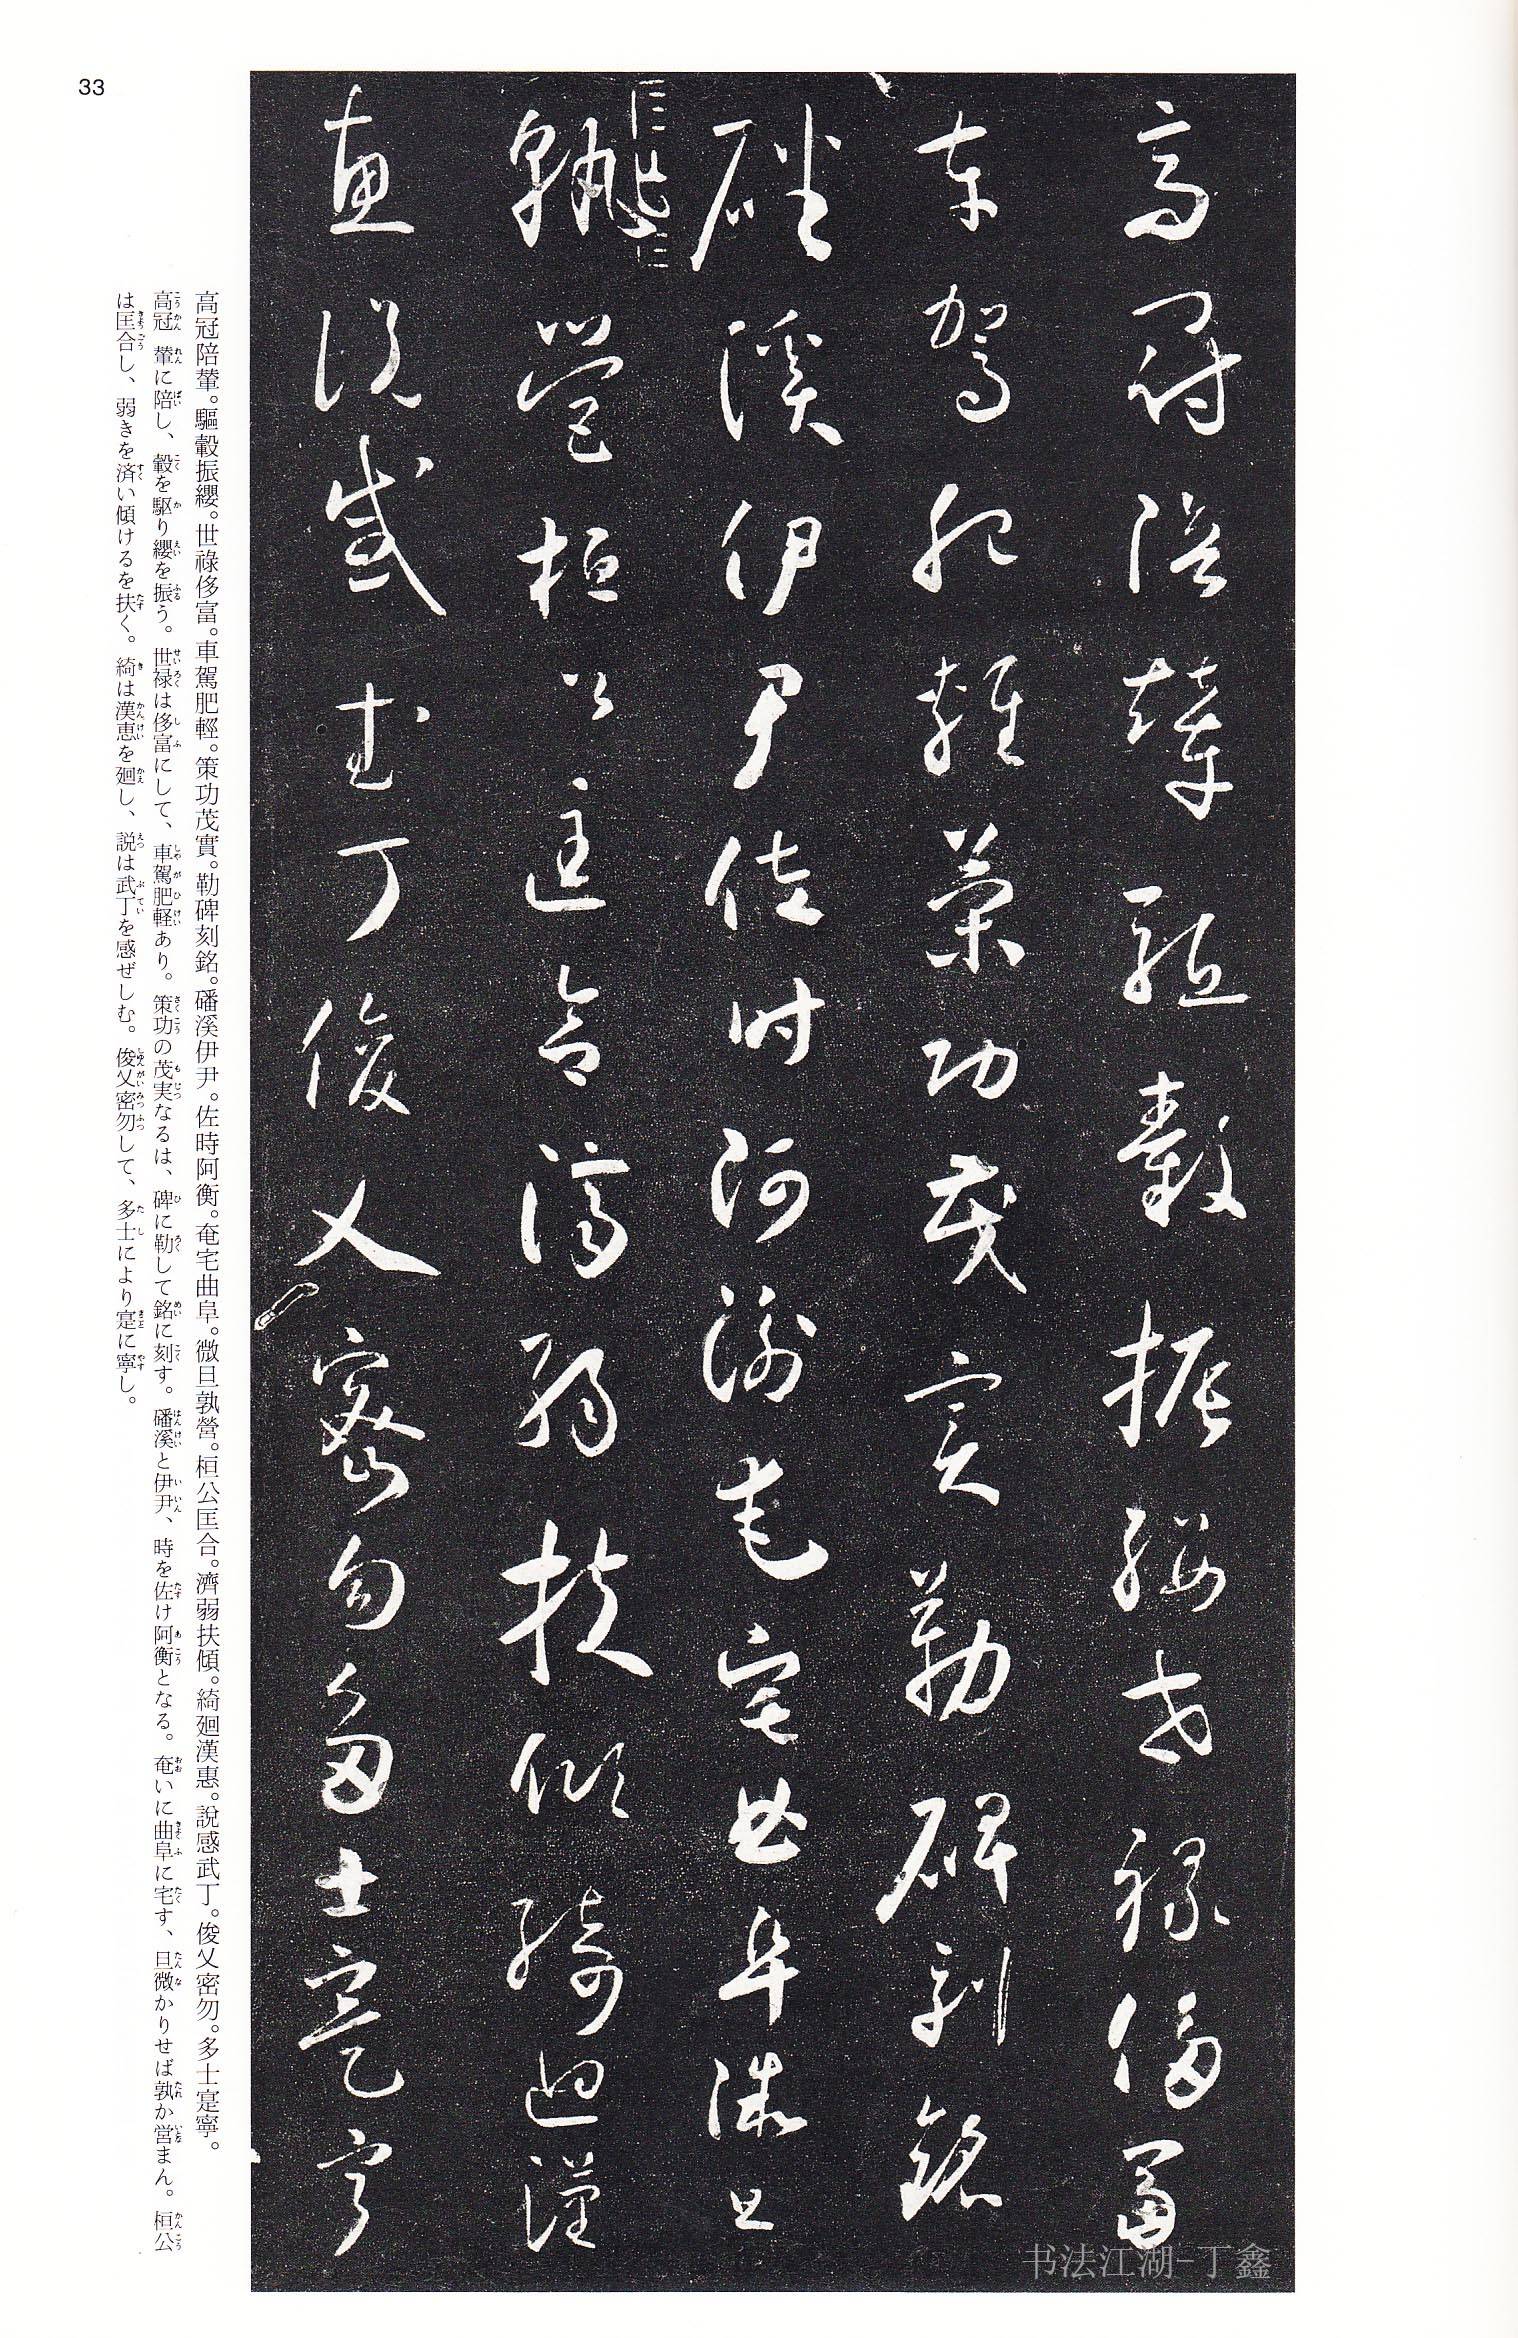 33
高冠陪輦驅轂振纓世祿侈富
車駕肥輕策功茂實勒碑刻銘
磻溪伊尹佐時阿衡奄宅曲阜微旦
孰營桓公匡合濟弱扶傾綺迴漢
惠說感武丁俊乂密勿多士寔寧
高冠陪輦。驅轂振纓。世祿侈富。車駕肥輕。策功茂實。勒碑刻銘。磻溪伊尹。佐時阿衡。奄宅曲阜。微旦孰營。桓公匡合。濟弱扶傾。綺廻漢惠。說感武丁。俊乂密勿。多士寔寧。
高冠 輦に陪し、轂を駆り纓を振う。世禄は侈富にして、車駕肥軽あり。策功の茂実なるは、碑に勒して銘に刻す。磻溪と伊尹、時を佐け阿衡となる。奄いに曲阜に宅す、旦微かりせば孰か営まん。桓公
は匡合し、弱きを済い傾けるを扶く。綺は漢恵を廻し、説は武丁を感ぜしむ。俊乂密勿して、多士により寔に寧し。
书法江湖-丁鑫